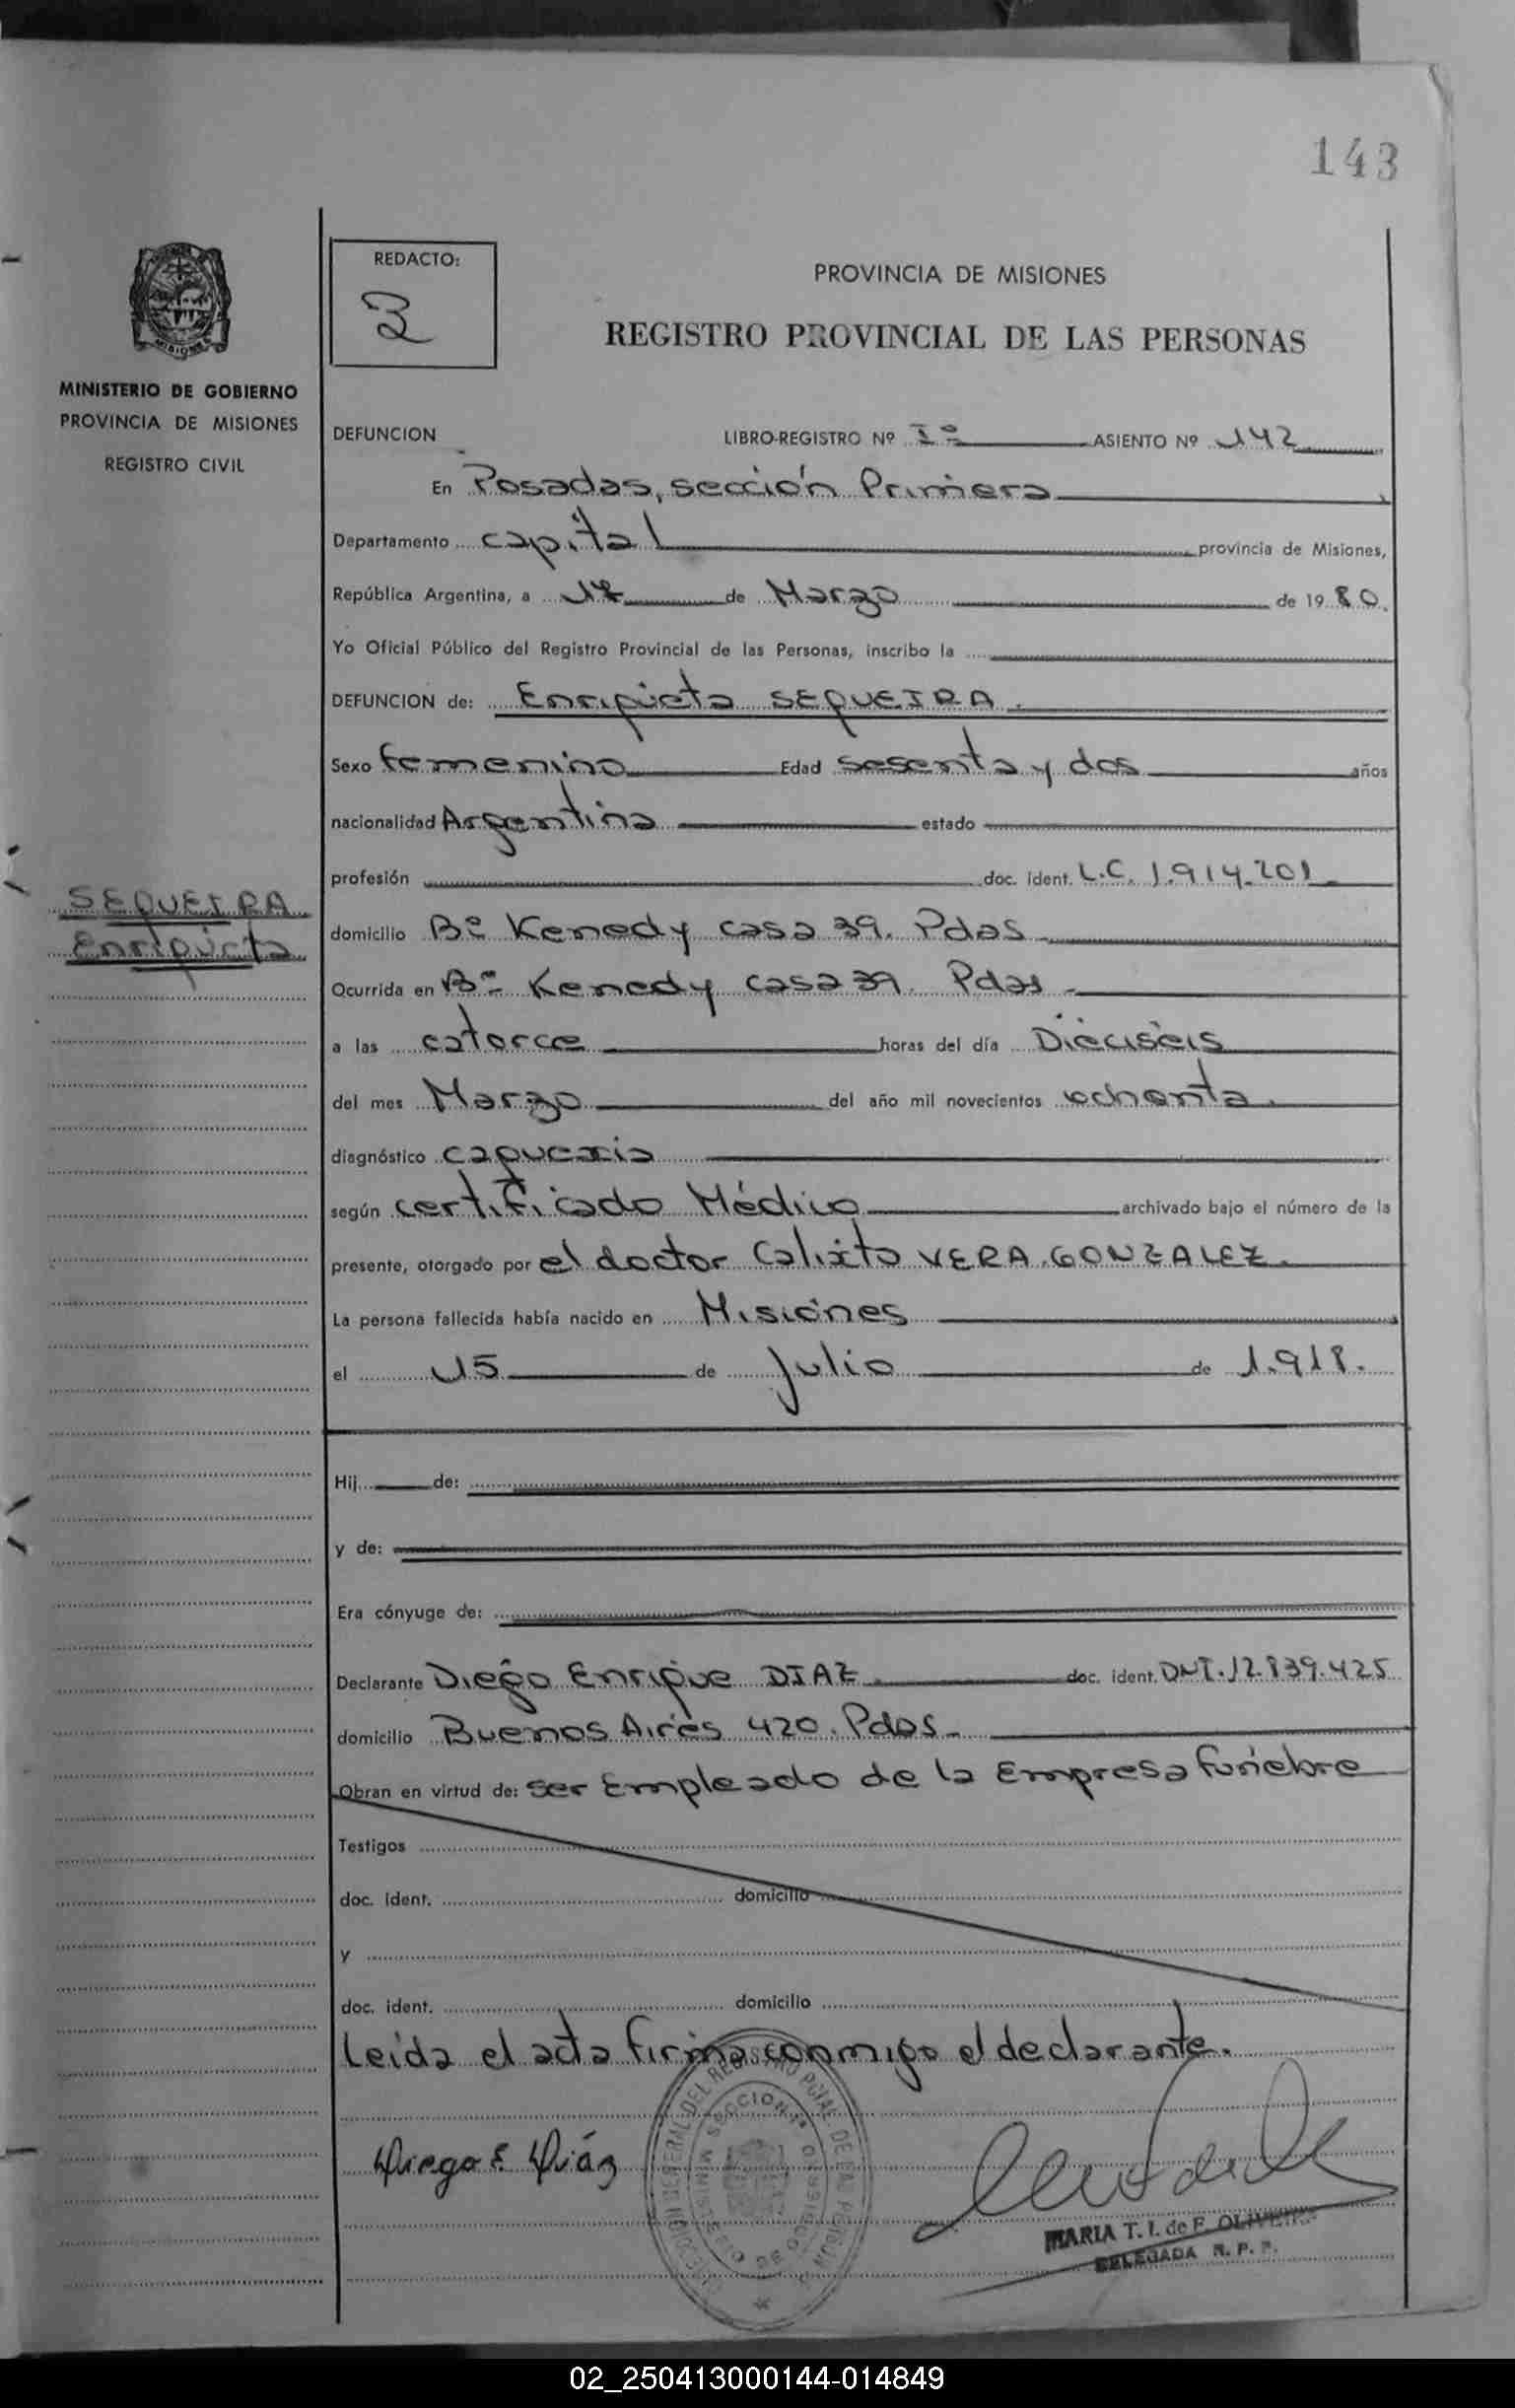 143
REDACTO:
3
PROVINCIA DE MISIONES
REGISTRO PROVINCIAL DE LAS PERSONAS
MISIONES
MINISTERIO DE GOBIERNO
PROVINCIA DE MISIONES
REGISTRO CIVIL
DEFUNCION LIBRO-REGISTRO Nº Iº ASIENTO Nº 142
En Posadas, sección Primera
Departamento capital provincia de Misiones,
República Argentina, a 17 de Marzo de 1980.
Yo Oficial Público del Registro Provincial de las Personas, inscribo la
DEFUNCION de: Enriqueta SEQUEIRA.
Sexo femenino Edad sesenta y dos años
nacionalidad Argentina estado
profesión doc. ident. L.C. 1.914.201
SEQUEIRA
Enriqueta
domicilio Bº Kenedy casa 39. Pdas
Ocurrida en Bº Kenedy casa 39. Pdas
a las catorce horas del día Dieciseis
del mes Marzo del año mil novecientos ochenta.
diagnóstico caquexia
según certificado Médico archivado bajo el número de la
presente, otorgado por el doctor Calixto VERA GONZALEZ.
La persona fallecida había nacido en Misiones
el 15 de Julio de 1.918.
Hij de:
y de:
Era cónyuge de:
Declarante Diego Enrique DIAZ. doc. ident. DNI. 12.839.425
domicilio Buenos Aires 420. Pdas.
Obran en virtud de: ser Empleado de la Empresa funebre
Testigos
doc. ident. domicilio
y
doc. ident. domicilio
Leida el acta firma conmigo el declarante.
Diego E Diáz
MARIA T. I. de F. OLIVEIRA
DELEGADA R. P. P.
02_250413000144-014849